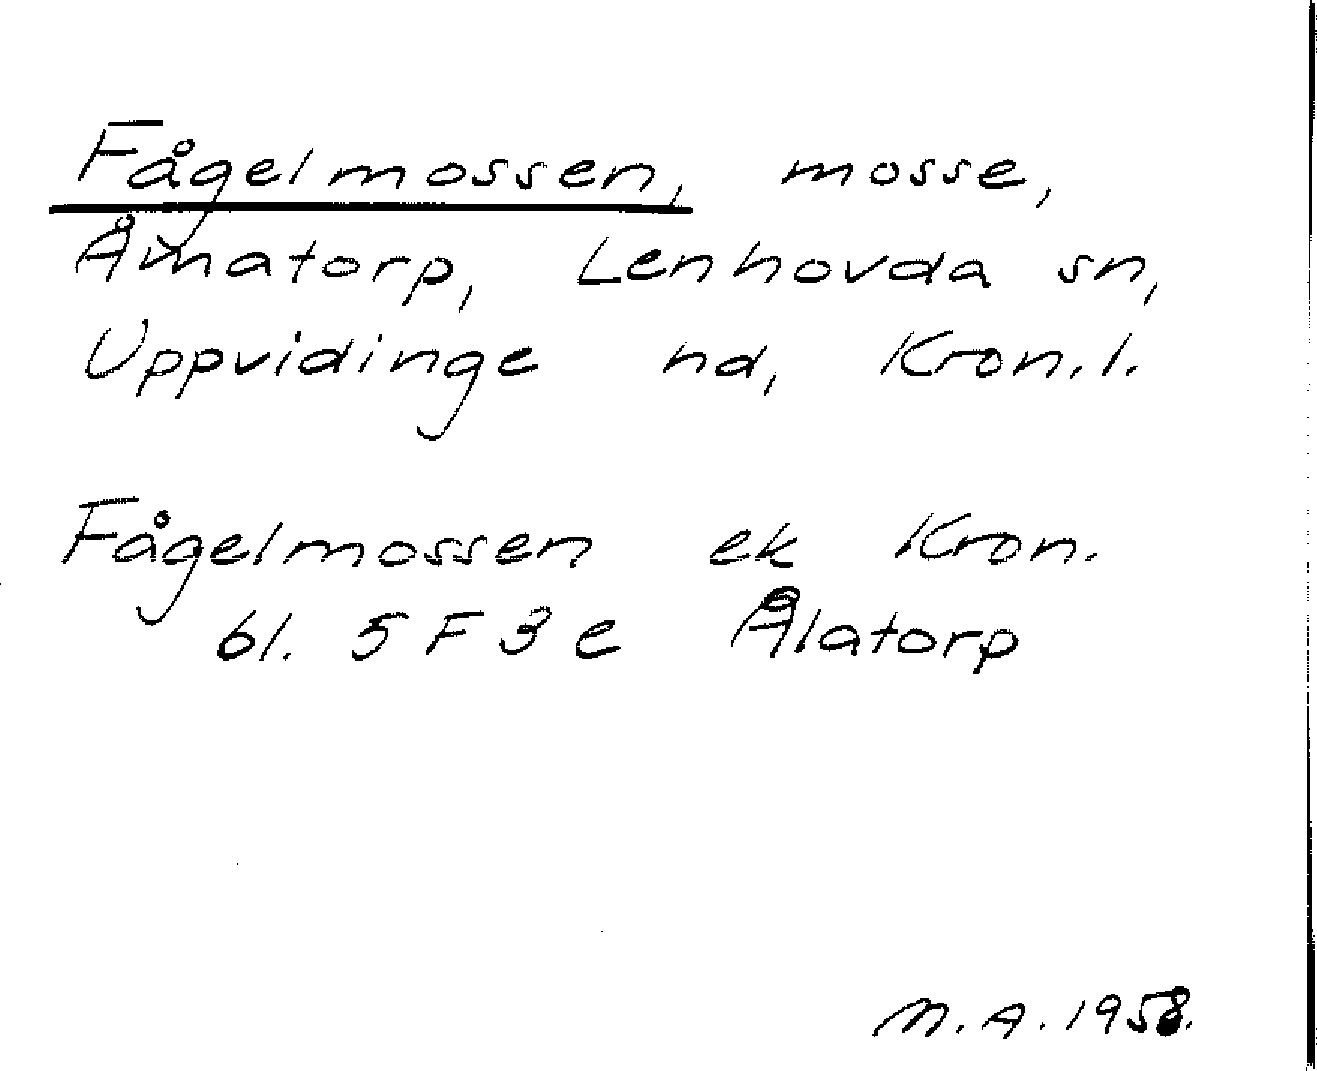 Fågelmossen, mosse,
Åmatorp, Lenhovda sn,
Uppvidinge hd, Kron.l.
Fågelmossen ek Kron.
bl. 5 F 3 e Ålatorp
M.A. 1958.